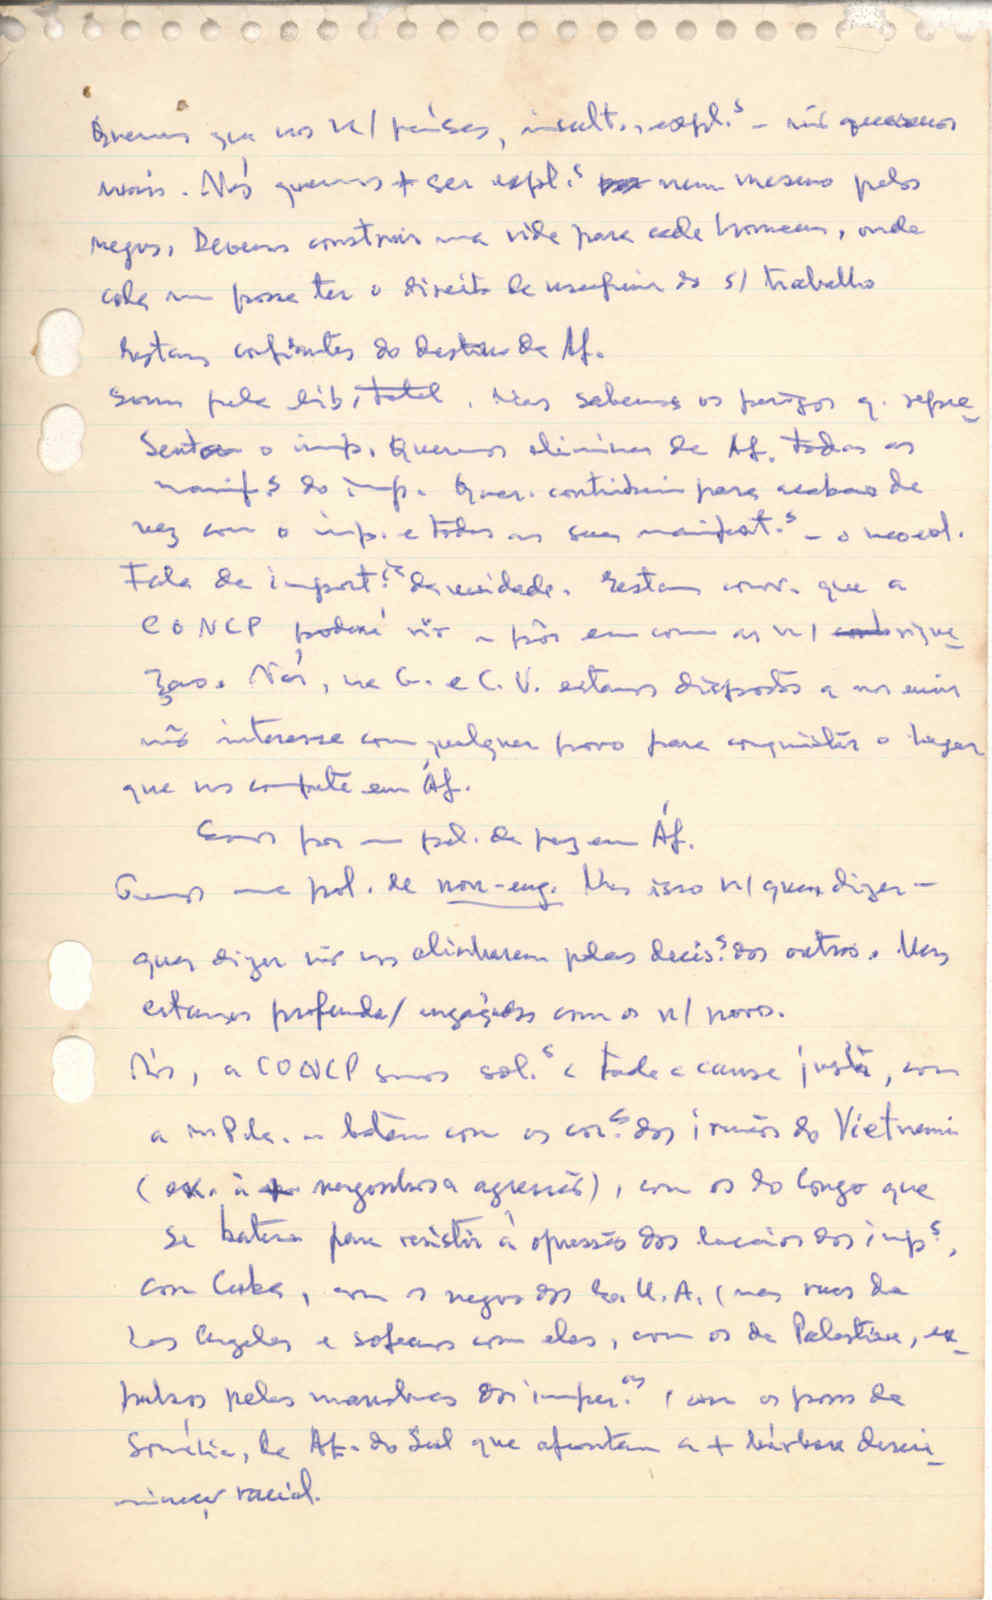 Queremos que nos n/ países, insult., expl.s – não queremos
mais. Nós queremos + ser expl.s nem mesmo pelos
negros. Devemos construir uma vida para cada homem, onde
cada um possa ter o direito de usufruir do s/ trabalho
Estamos confiantes do destino de Áf.
Somos pela lib. total. Mas sabemos os perigos q. repre-
sentam o imp. Queremos eliminar de Áf. todas as
manif.s do imp. Quer. contribuir para acabar de
vez com o imp. e todas as suas manifest.s – o neocol.
Fala da import.cia da unidade. Estamos conv. que a
CONCP poderá vir a pôr em com as n/ rique-
zas. Nós, na G. e C.V. estamos dispostos a nos unir
não interesse com qualquer povo para conquistar o lugar
que nos compete em Áf.
Somos por uma pol. de paz em Áf.
Temos uma pol. de non-eng. Mas isso n/ quer dizer –
quer dizer não nos alinharem pelas decis.s dos outros. Mas
estamos profunda/ engajados com os n/ povos.
Nós, a CONCP somos sol.s c/ toda a causa justa, com
a batem com os cor.s dos irmãos do Vietname
(ex. à + vergonhosa agressão), com os do Congo que
se batem para resistir à opressão dos lacaios dos imp.s,
com Cuba, com os negros dos E.U.A. (nas ruas de
Los Angeles e sofremos com eles, com os da Palestina, ex-
pulsos pelas manobras do imper.mo, com os povos da
Somália, da Áf. do Sul que afrontam a + bárbara descri-
minação racial.